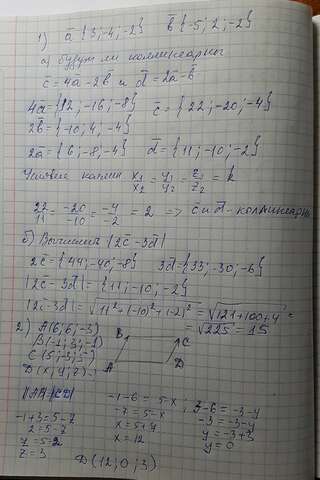 1) a {3; -4; -2} b {-5; 2; -2}
а) будут ли коллинеарны
c = 4a - 2b и d = 2a - b
4a = {12, -16, -8} c = {22; -20; -4}
2b = {-10; 4; -4}
2a = {6; -8; -4} d = {11; -10; -2}
Условие x₁/x₂ = y₁/y₂ = z₁/z₂ = k
22/11 = -20/-10 = -4/-2 = 2 => c и d - коллинеарны
б) Вычислить |2c - 3d|
2c = {44; -40; -8} 3d = {33; -30; -6}
|2c - 3d| = {11; -10; -2}
|2c - 3d| = √11² + (-10)² + (-2)² = √121 + 100 + 4 =
= √225 = 15
2.) A(6; 6; -3) B C
C(5; 3; -7) A D
D(x; y; z)
-1-6 = 5-x
3-6 = -3-y
-1+3 = 5-z
-7 = 5-x
-3 = -3-y
2 = 5-z
x = 5+7
y = -3+3
z = 5-2
x = 12
y = 0
z = 3
D (12; 0; 3)